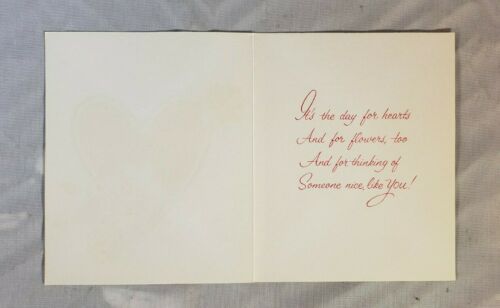 It's the day for hearts
And for flowers, too
And for thinking of
Someone nice, like YOU!